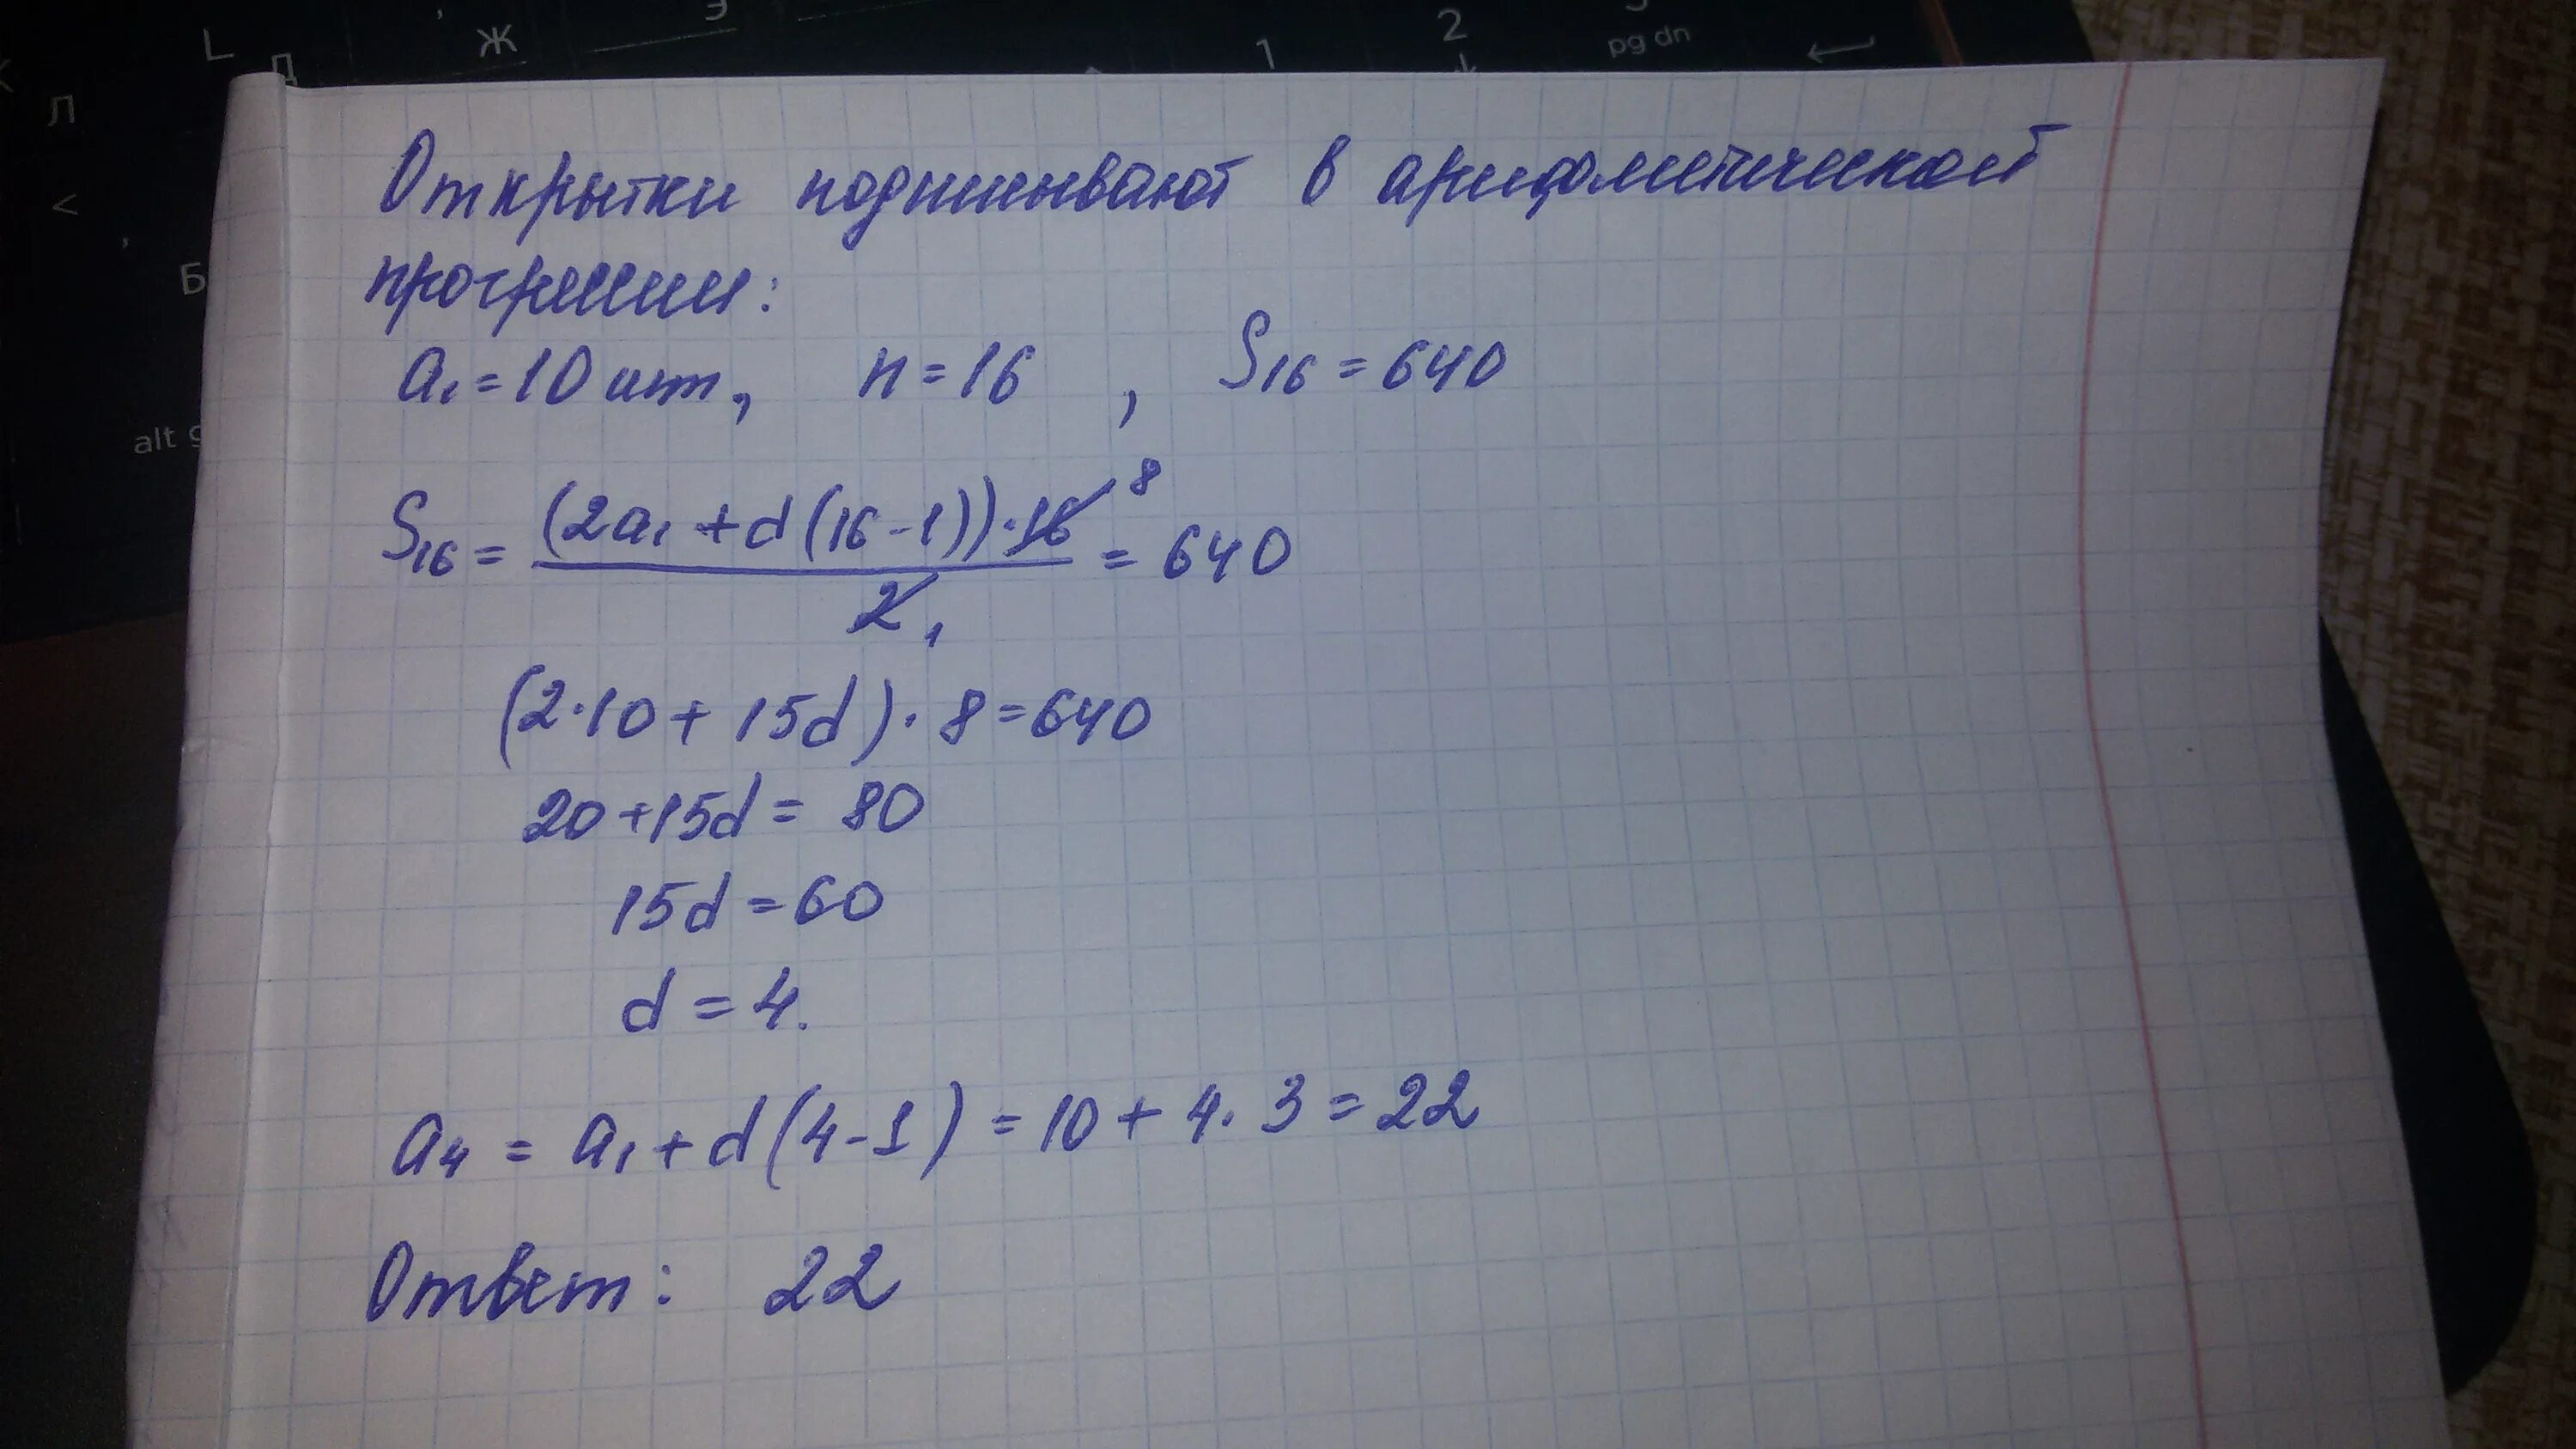 L
Д
Ж
Э
1
2
pg dn
Л
<
Б
alt g
Открытки подписывают в арифметической
прогрессии:
a₁ = 10 шт, n = 16 , S₁₆ = 640
S₁₆ = (2a₁ + d(16-1))·16 8 / 2 1 = 640
(2·10 + 15d)·8 = 640
20 + 15d = 80
15d = 60
d = 4.
a₄ = a₁ + d(4-1) = 10 + 4·3 = 22
Ответ: 22